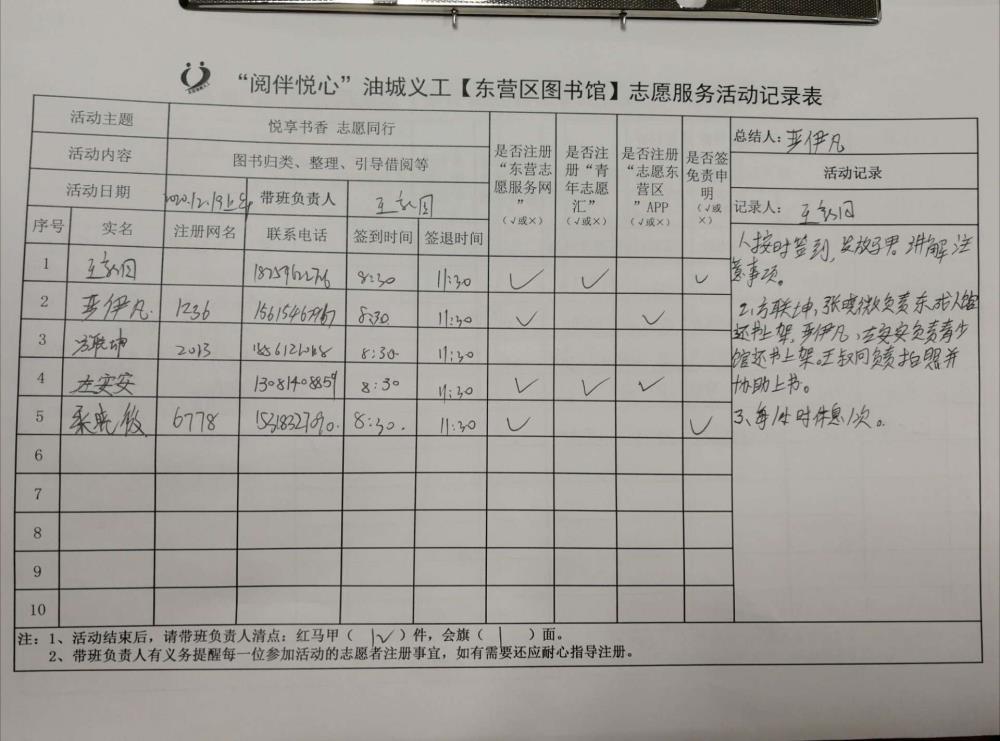 “阅伴悦心”油城义工【东营区图书馆】志愿服务活动记录表
活动主题 悦享书香 志愿同行
活动内容 图书归类、整理、引导借阅等
活动日期 2020.12.19上午 带班负责人
是否注册“东营志愿服务网” （√或×）
是否注册“青年志愿汇” （√或×）
是否注册“志愿东营区”APP （√或×）
是否签免责申明 （√或×）
总结人： 伊凡
活动记录
记录人：
序号 实名 注册网名 联系电话 签到时间 签退时间
1 8:30 11:30 √ √ √
2 伊凡 1236 8:30 11:30 √ √
3 方联坤 2013 8:30 11:30
4 左安安 13081408859 8:30 11:30 √ √ √
5 6778 8:30. 11:30 √ √
6
7
8
9
10
人按时签到, 发放 讲解注
意事项。
2、方联坤, 张晓微负责东成人馆
还书上架, 伊凡、左安安负责青少
馆还书上架。王 负责拍照并
协助上书。
3、每1小时休息1次。
注：1、活动结束后，请带班负责人清点：红马甲（ ）件，会旗（ ）面。
2、带班负责人有义务提醒每一位参加活动的志愿者注册事宜，如有需要还应耐心指导注册。